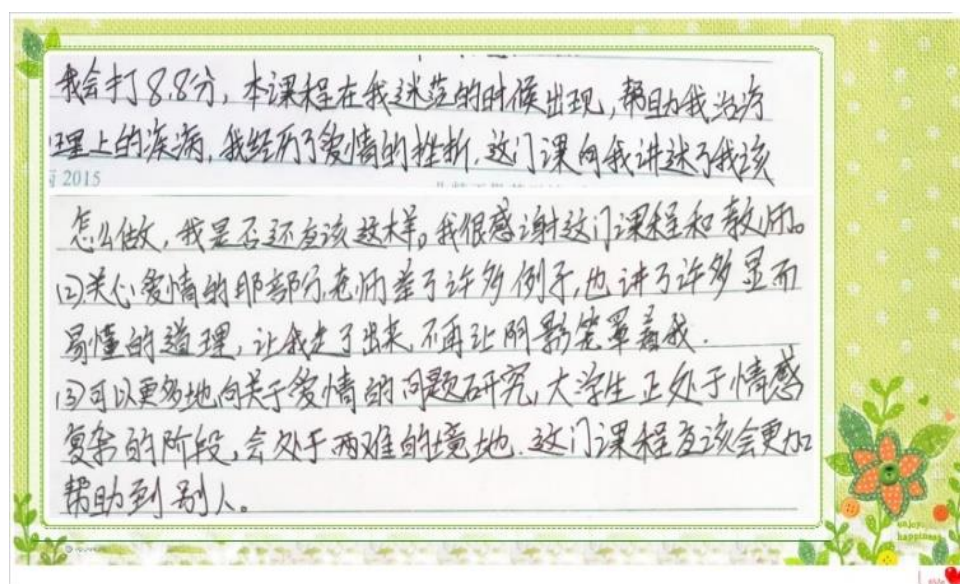 我会打8.8分，本课程在我迷茫的时候出现，帮助我治疗
理上的疾病，我经历了爱情的挫折，这门课向我讲述了我该
2015
怎么做，我是否还应该这样。我很感谢这门课程和教师。
(2)关心爱情的那部分，老师举了许多例子，也讲了许多显而
易懂的道理，让我走了出来，不再让阴影笼罩着我．
(3)可以更多地向关于爱情的问题研究，大学生正处于情感
复杂的阶段，会处于两难的境地．这门课程应该会更加
帮助到别人。
enjoy
happiness